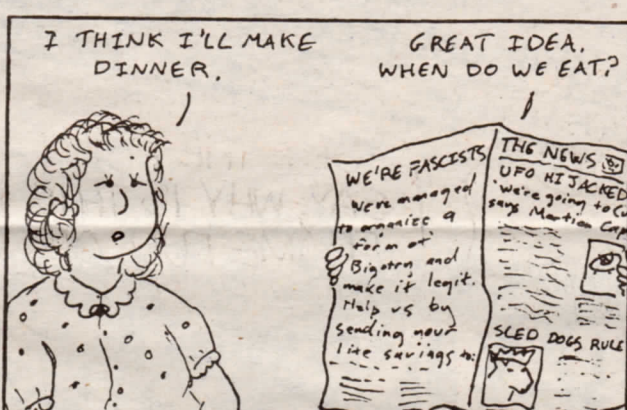 I THINK I'LL MAKE
DINNER.
GREAT IDEA.
WHEN DO WE EAT?
WE'RE FASCISTS
We've managed
to organize a
form of
Bigotry and
make it legit.
Help us by
sending your
life savings to:
THE NEWS
UFO HIJACKED
"We're going to Cu
says Martian Cap
SLED DOGS RULE